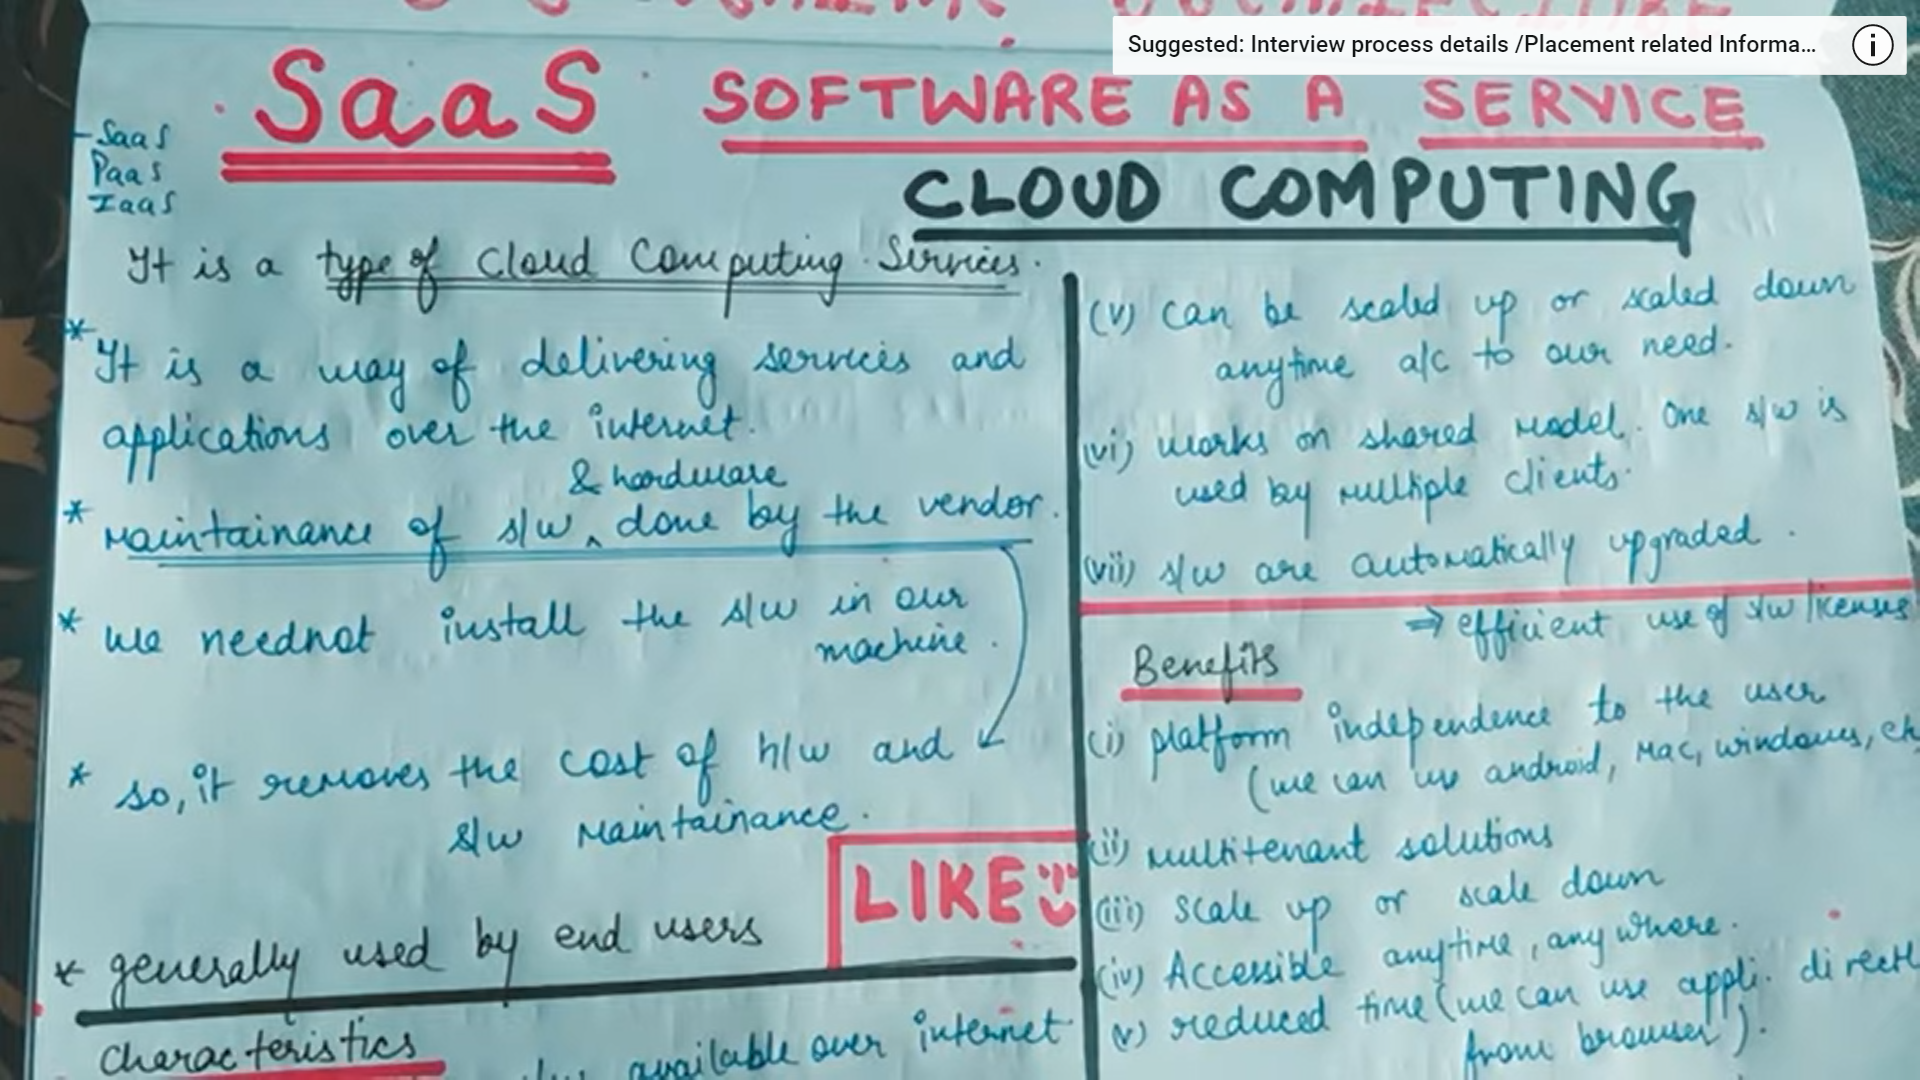 Suggested: Interview process details /Placement related Informa...
SaaS
SOFTWARE AS A SERVICE
CLOUD COMPUTING
- SaaS
PaaS
IaaS
It is a type of Cloud Computing Services.
* It is a way of delivering services and
applications over the internet.
& hardware
* Maintainance of s/w ^ done by the vendor.
* we neednot install the s/w in our
machine.
* so, it removes the cost of h/w and
s/w Maintainance.
LIKE
* generally used by end users
Characteristics
available over internet
(v) can be scaled up or scaled down
anytime a/c to our need.
(vi) works on shared model. One s/w is
used by multiple clients.
(vii) s/w are automatically upgraded.
⇒ efficient use of s/w licenses
Benefits
(i) platform independence to the user
(we can use android, Mac, windows,
(ii) Multitenant solutions
(iii) Scale up or scale down
(iv) Accessible anytime, any where.
(v) reduced time (we can use appli. directl
from browser).